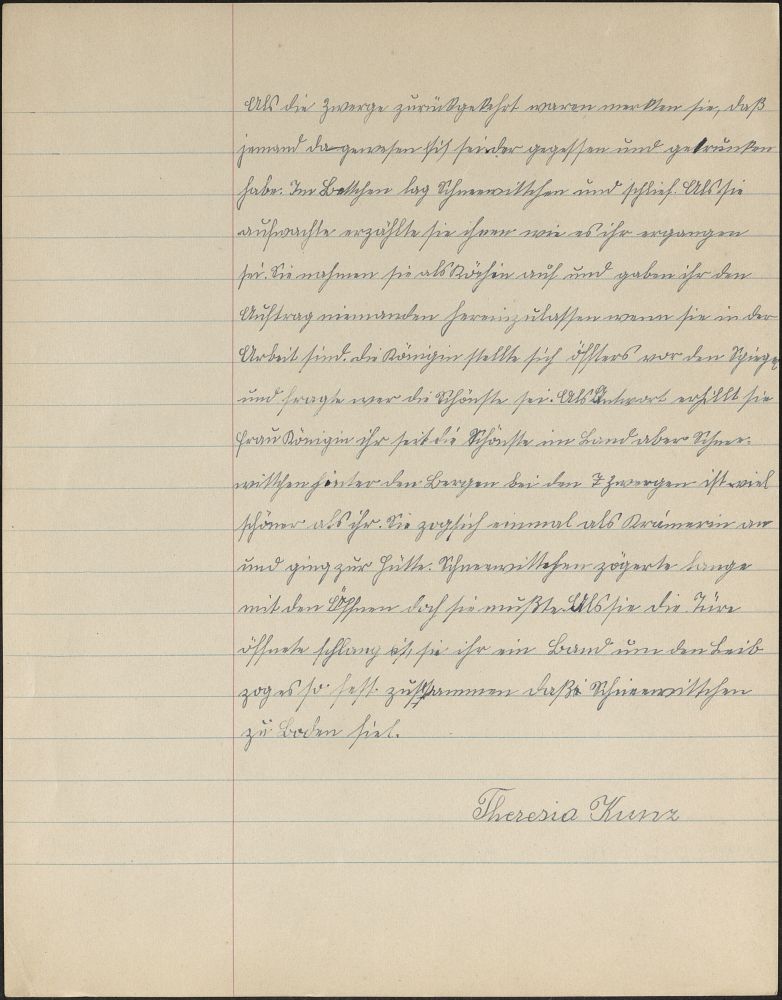 Als die Zwerge zurückgekehrt waren merkten sie, daß
jemand da gewesen sei, der gegessen und getrunken
habe. Im Bettchen lag Schneewittchen und schlief. Als sie
aufwachte erzählte sie ihnen wie es ihr ergangen
sei. Sie nahmen sie als Köchin auf und gaben ihr den
Auftrag niemanden hereinzulassen wenn sie in der
Arbeit sind. Die Königin stellte sich öffters vor den Spiegel
und fragte wer die Schönste sei. Als Antwort erhillt sie
Frau Königin ihr seit die Schönste im Land aber Schnee-
wittchen hinter den Bergen bei den 7 Zwergen ist viel
schöner als ihr. Sie zog sich einmal als Krämerin an
und ging zur Hütte. Schneewittchen zögerte lange
mit den Öffnen doch sie mußte. Als sie die Türe
öffnete schlang sie ihr ein Band um den Leib
zog es so fest zusammen daß Schneewittchen
zu Boden fiel.
Theresia Kunz